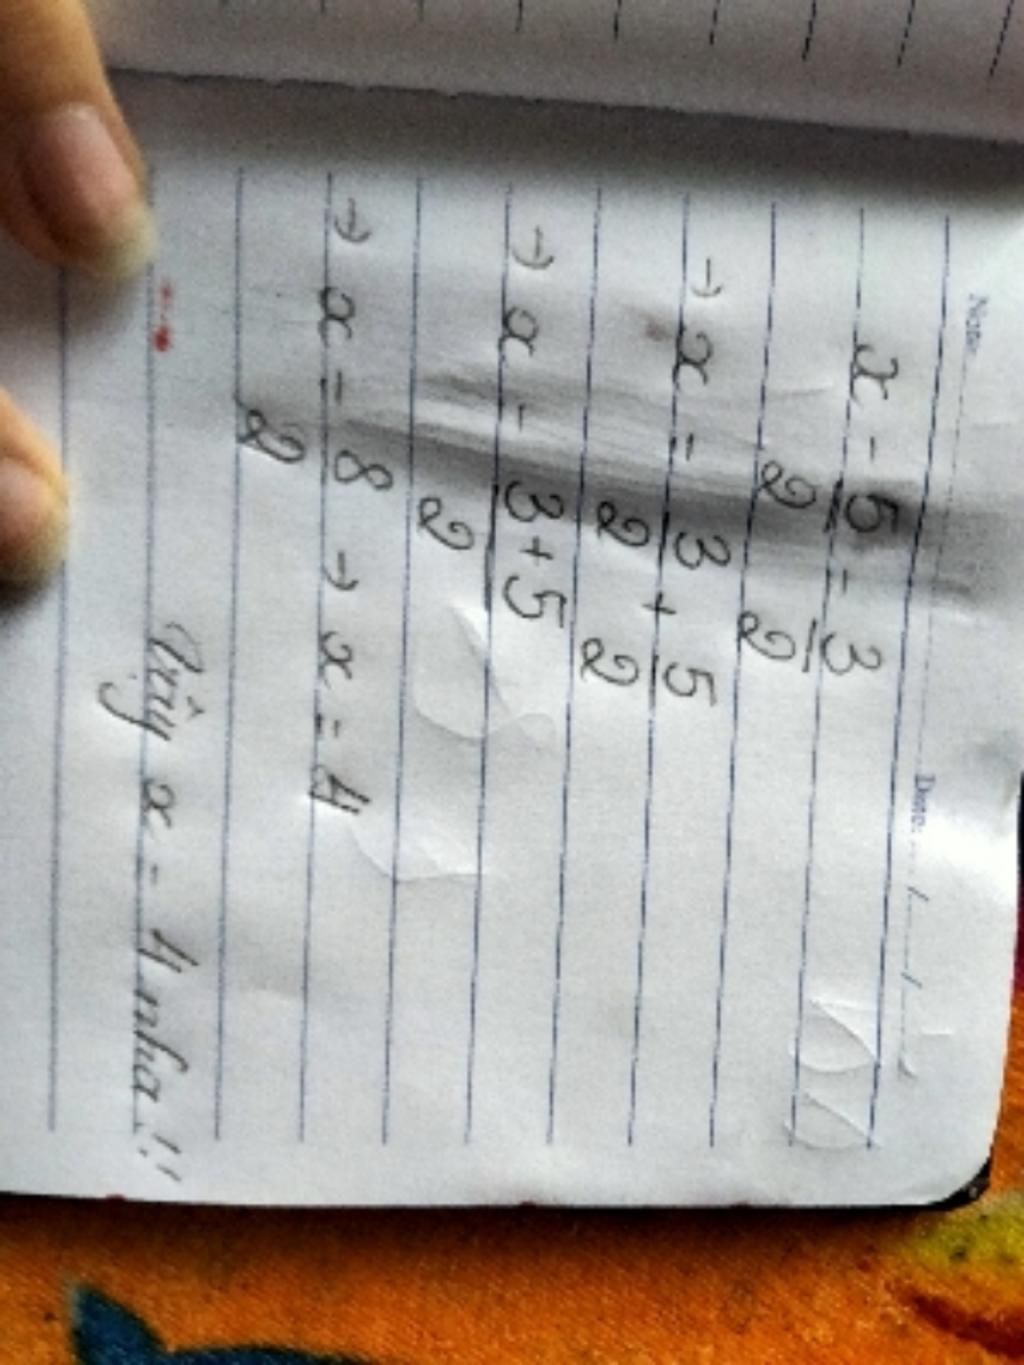 Note: Date: / /
x - 5/2 = 3/2
→ x = 3/2 + 5/2
→ x = 3+5/2
→ x = 8/2 → x = 4
Vậy x = 4 nha!!